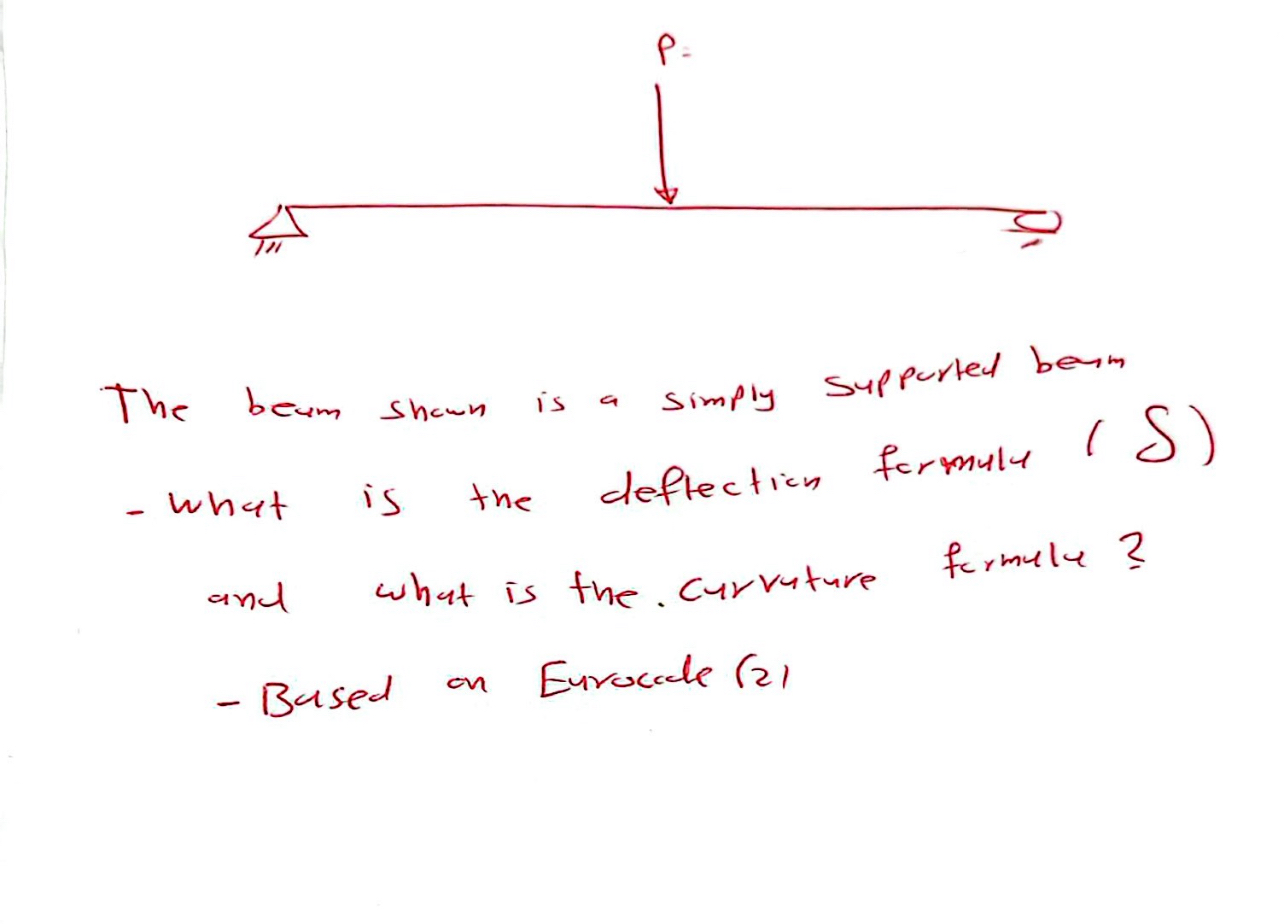 P=
The beam shown is a simply supported beam
- what is the deflection formula (δ)
and what is the. curvature formula ?
- Based on Eurocode (2)